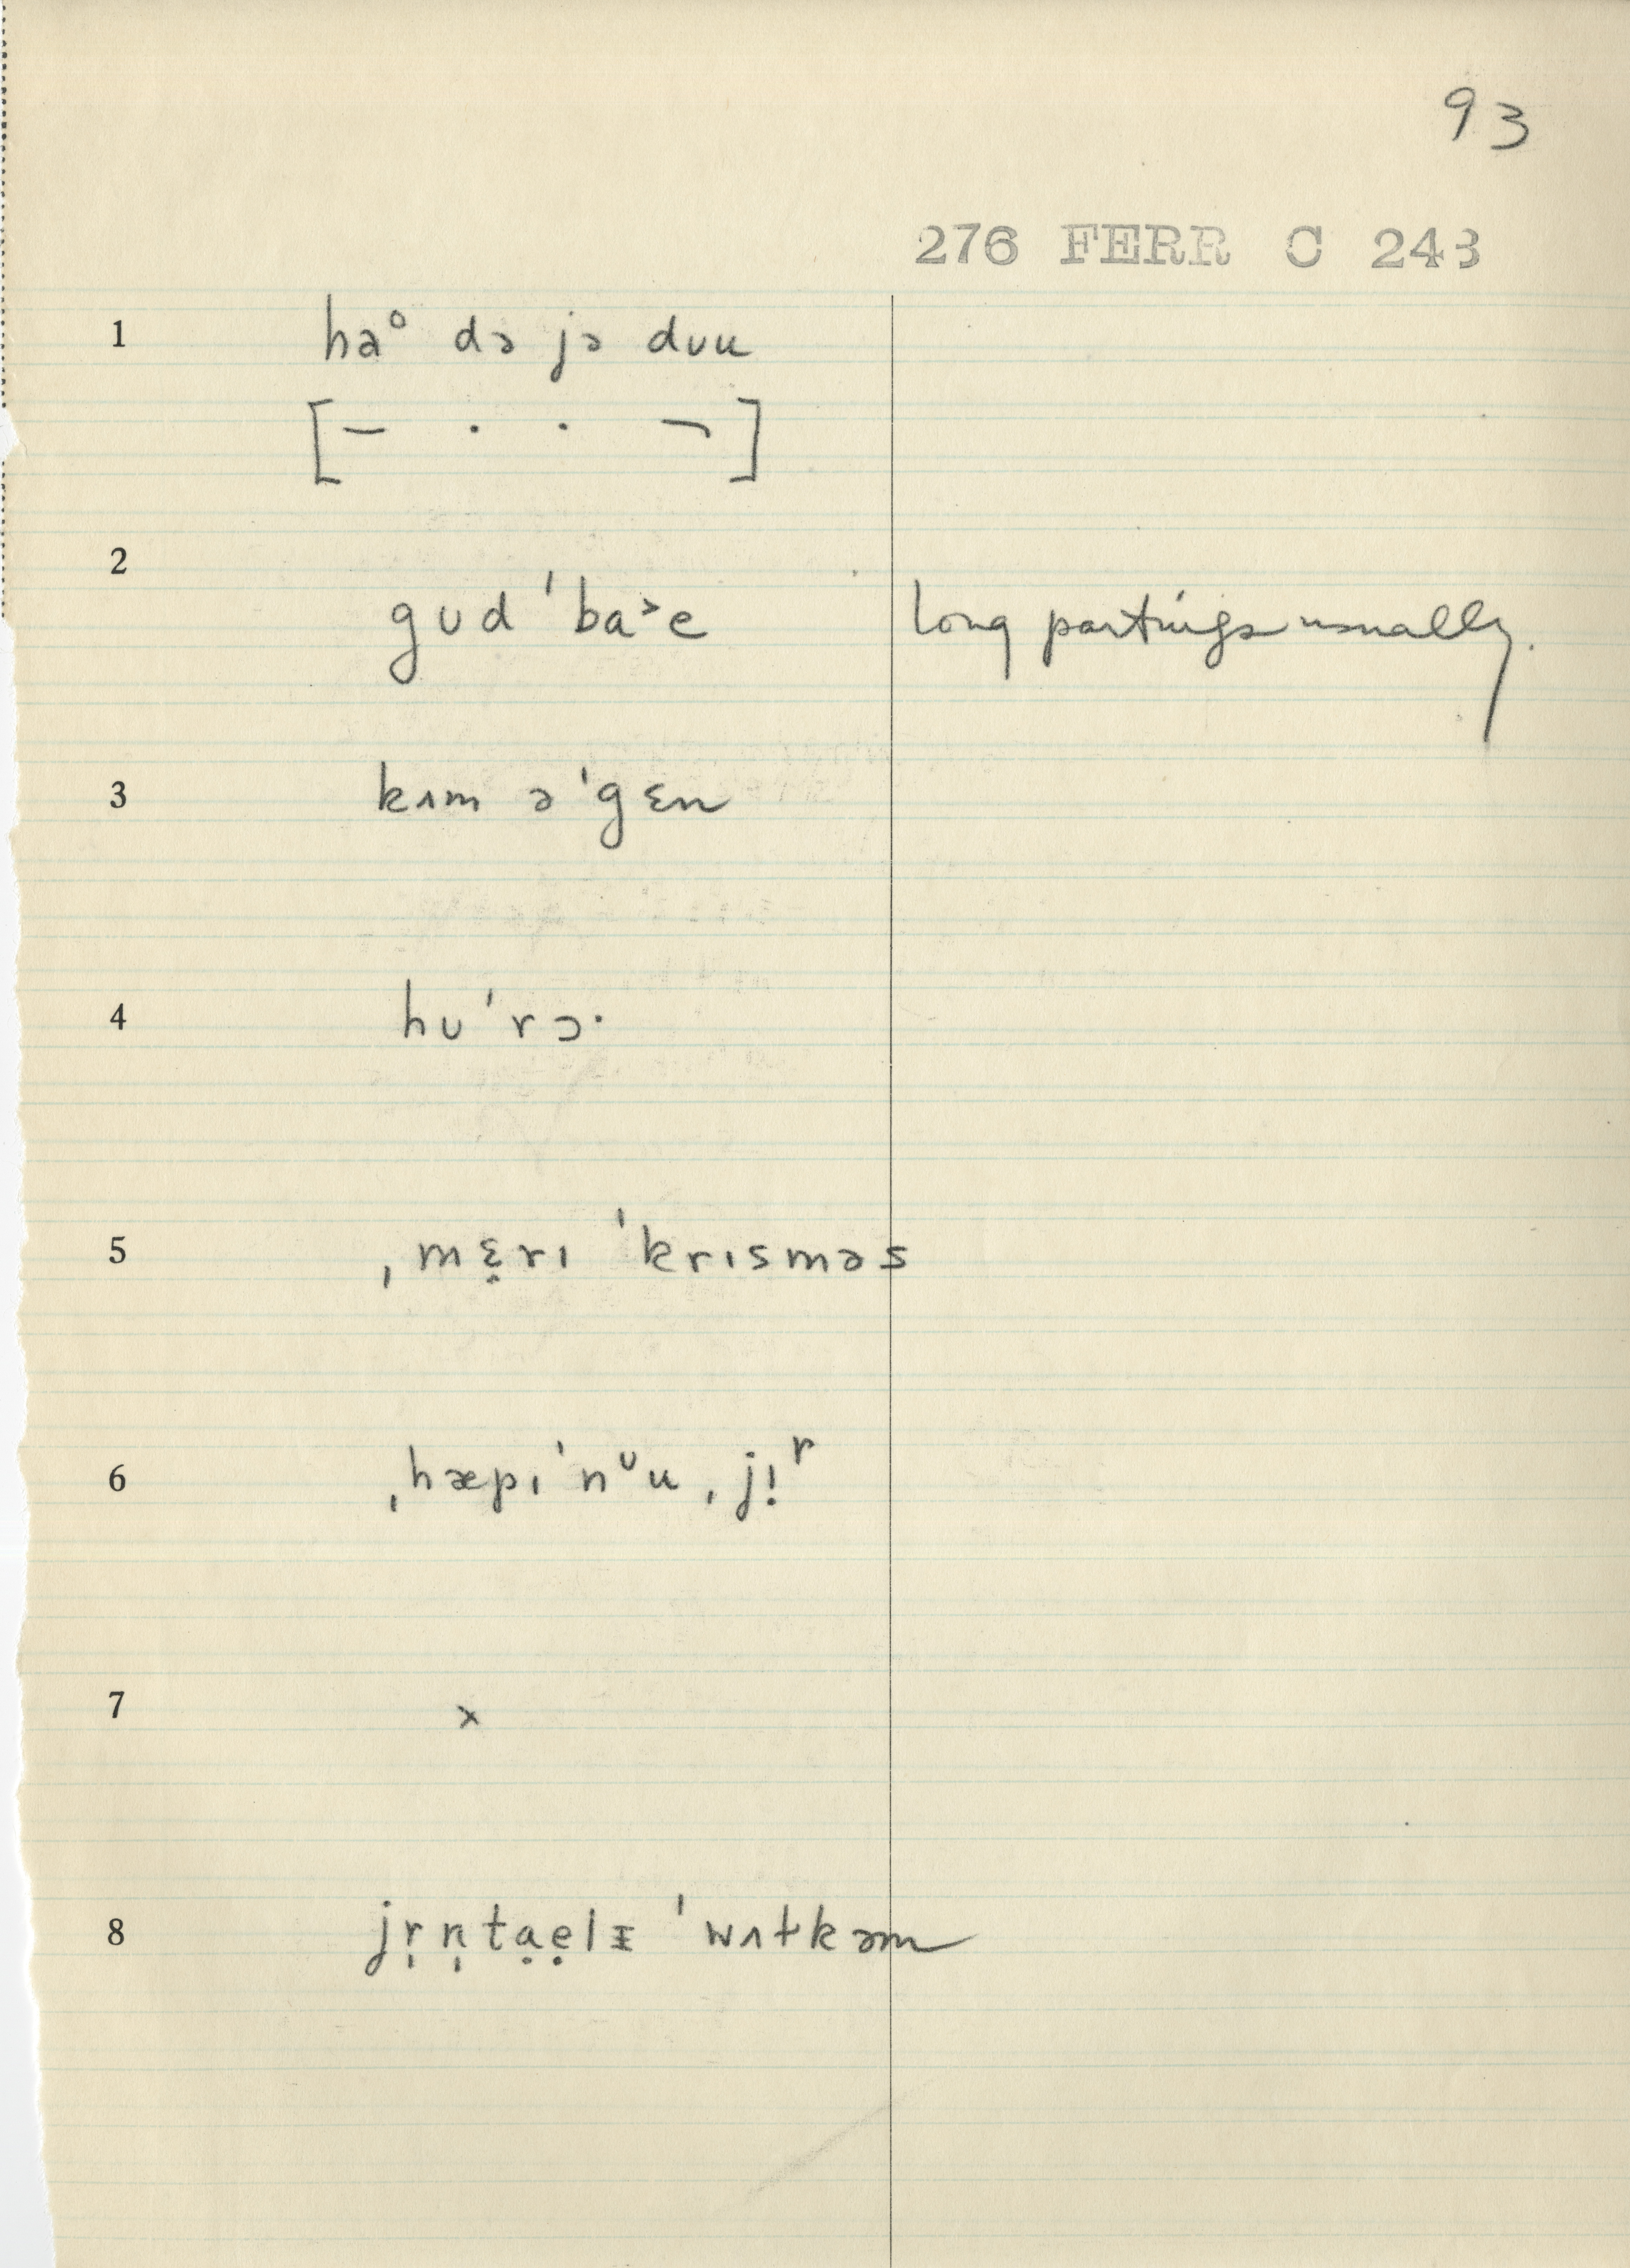 93
276 FERR C 243
1 haᵒ də jə dᴜu
[– · · ¬]
2
gᴜd ˈba˃e long partings usually.
3 kɪm əˈgɛn
4 hᴜˈrɔ·
5 ˌmɛ̣rɪ ˈkrɪsməs
6 ˌhæpɪˈnᶸu ˌjɪ̣ʳ
7 x
8 jr̩n̩tạẹlɪ ˈwʌɫkəm